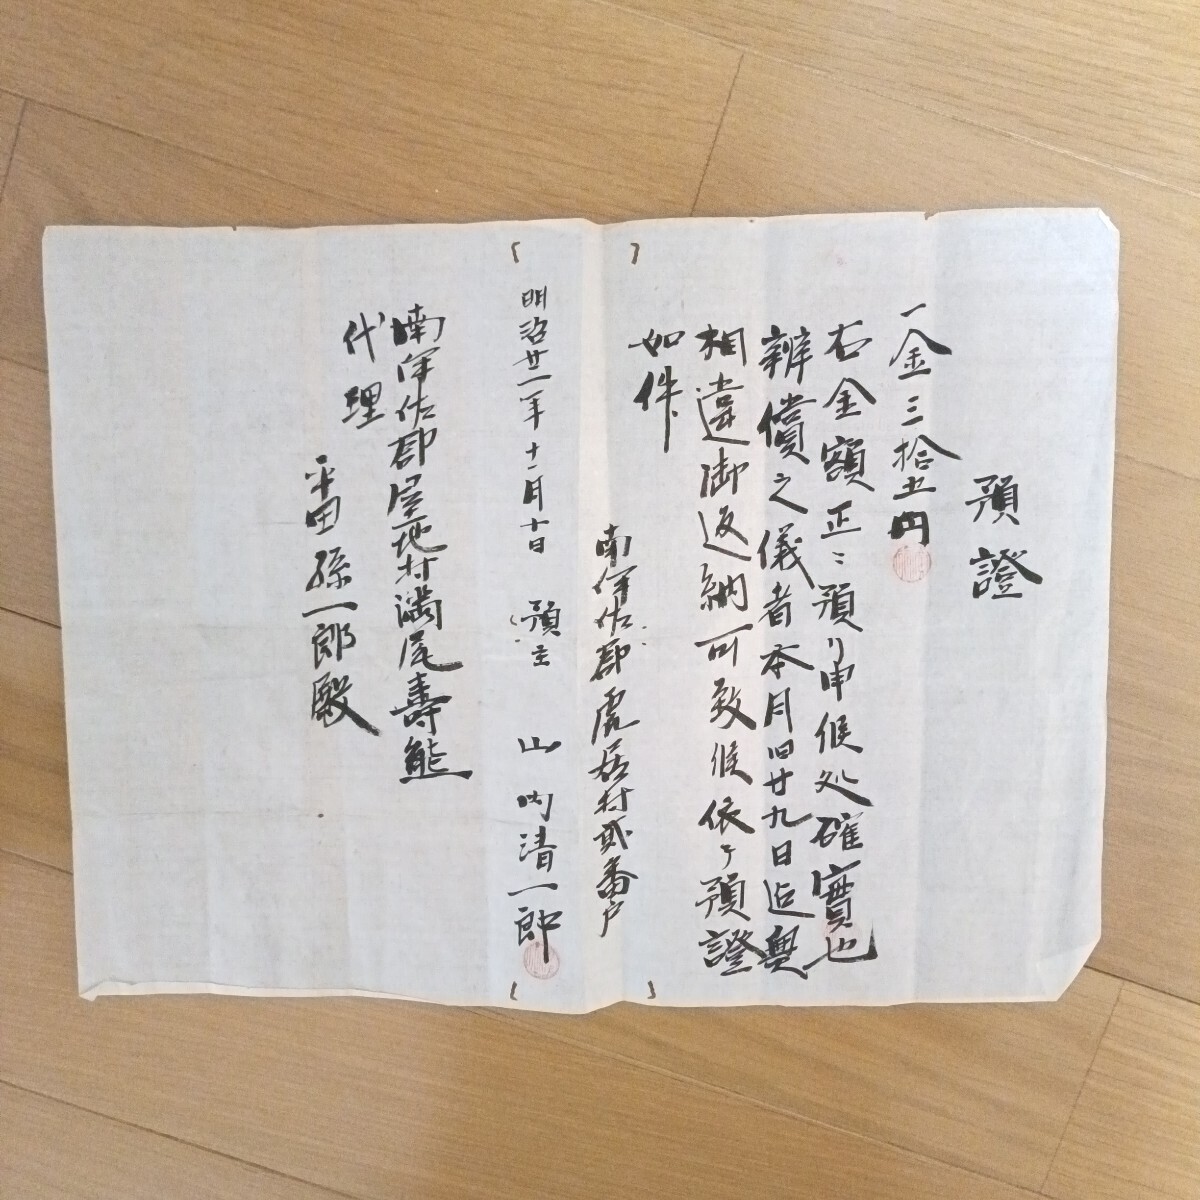 預證
一金三拾五円
右金額正ニ預リ申候処確實也
辨償之儀者本月旧廿九日迠無
相違御返納可致候依テ預證
如件
南伊佐郡虎居村貳番戸
明治廿一年十一月十日 預主 山内清一郎
南伊佐郡屋地村満尾壽熊
代理
平田孫一郎殿